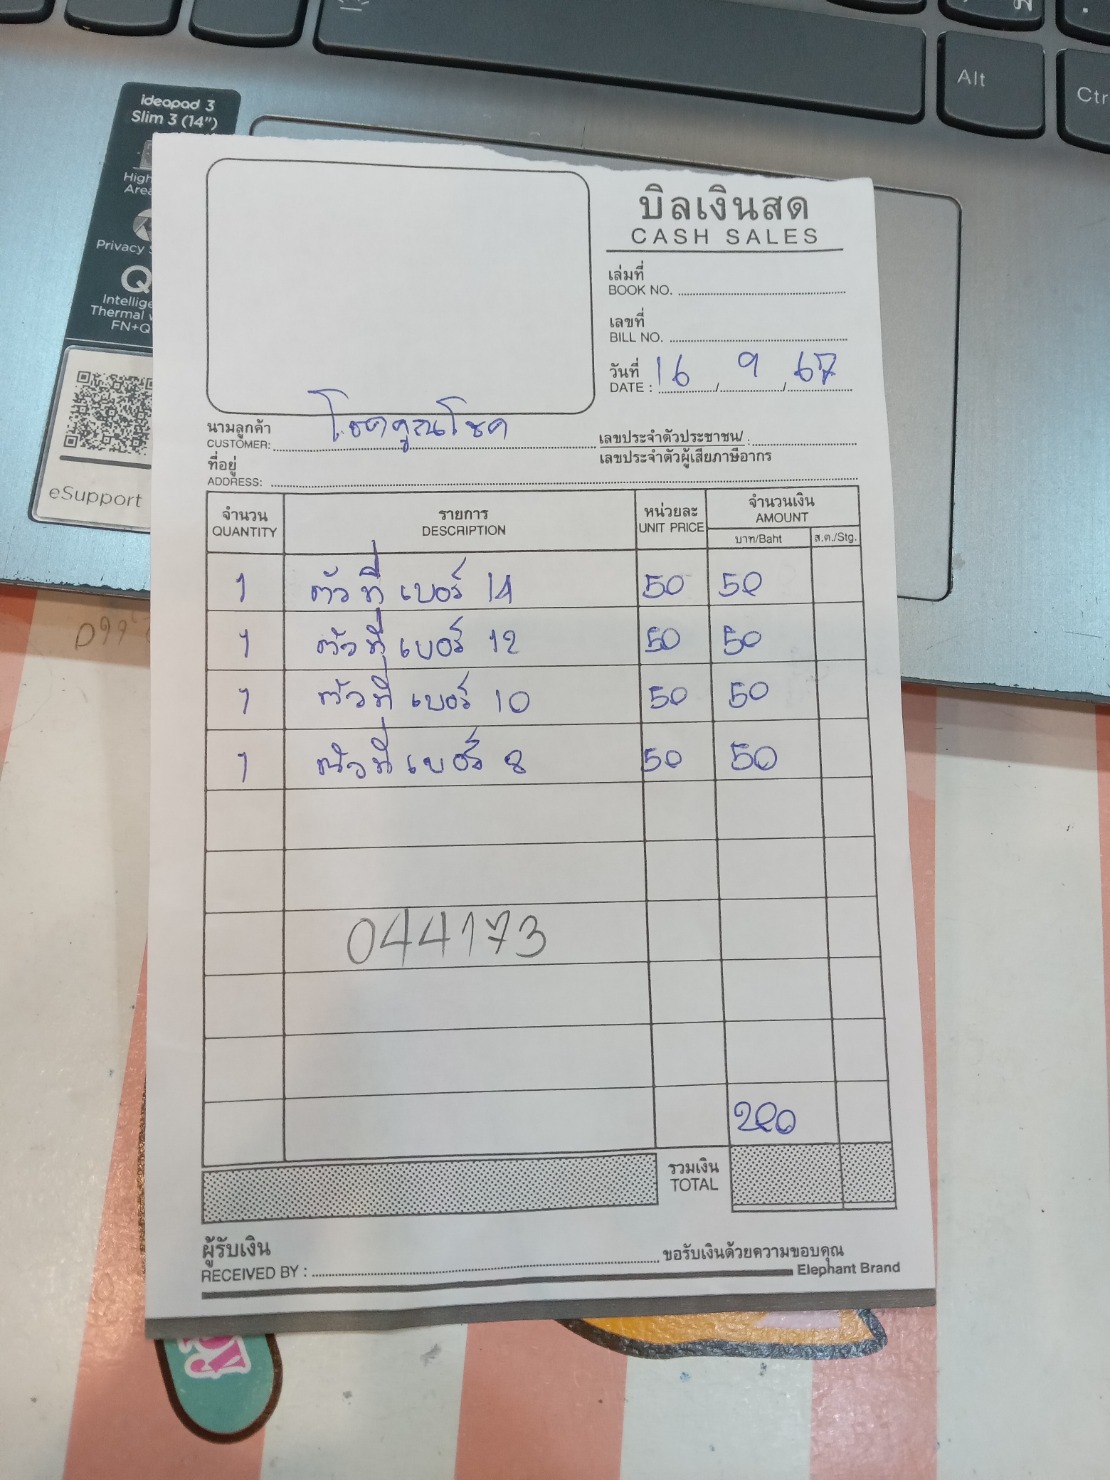 Alt
Ctr
ideapad 3
Slim 3 (14")
High
Area
Privacy
Q
Intellige
Thermal
FN+Q
eSupport
บิลเงินสด
CASH SALES
เล่มที่
BOOK NO.
เลขที่
BILL NO.
วันที่
DATE : 16 / 9 / 67
นามลูกค้า
CUSTOMER: โชคคูณโชค
เลขประจำตัวประชาชน/ :
เลขประจำตัวผู้เสียภาษีอากร
ที่อยู่
ADDRESS:
จำนวน รายการ หน่วยละ จำนวนเงิน
QUANTITY DESCRIPTION UNIT PRICE AMOUNT
บาท/Baht ส.ต./Stg.
1 ตัวที่ เบอร์ 14 50 50
1 ตัวที่ เบอร์ 12 50 50
1 ตัวที่ เบอร์ 10 50 50
1 ตัวที่ เบอร์ 8 50 50
044173
200
รวมเงิน
TOTAL
ผู้รับเงิน
RECEIVED BY :
ขอรับเงินด้วยความขอบคุณ
Elephant Brand